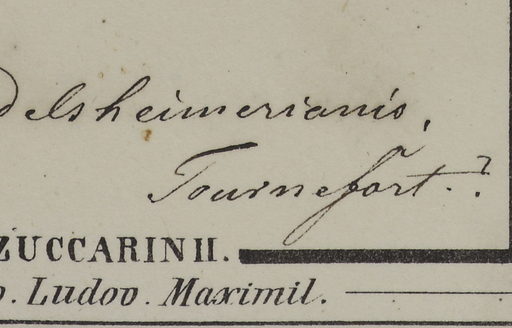 delsheimerianis,
Tournefort.?
ZUCCARINII.
o. Ludov. Maximil.